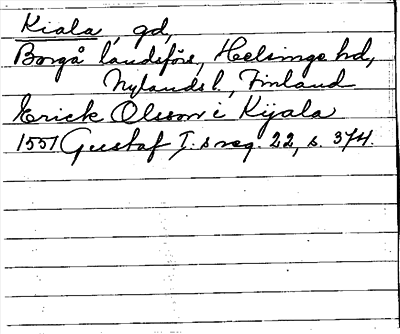 Kiala, gd,
Borgå landsförs, Helsinge hd,
Nylands l., Finland
Erick Olsson i Kijala
1551 Gustaf I:s reg. 22, s. 374.